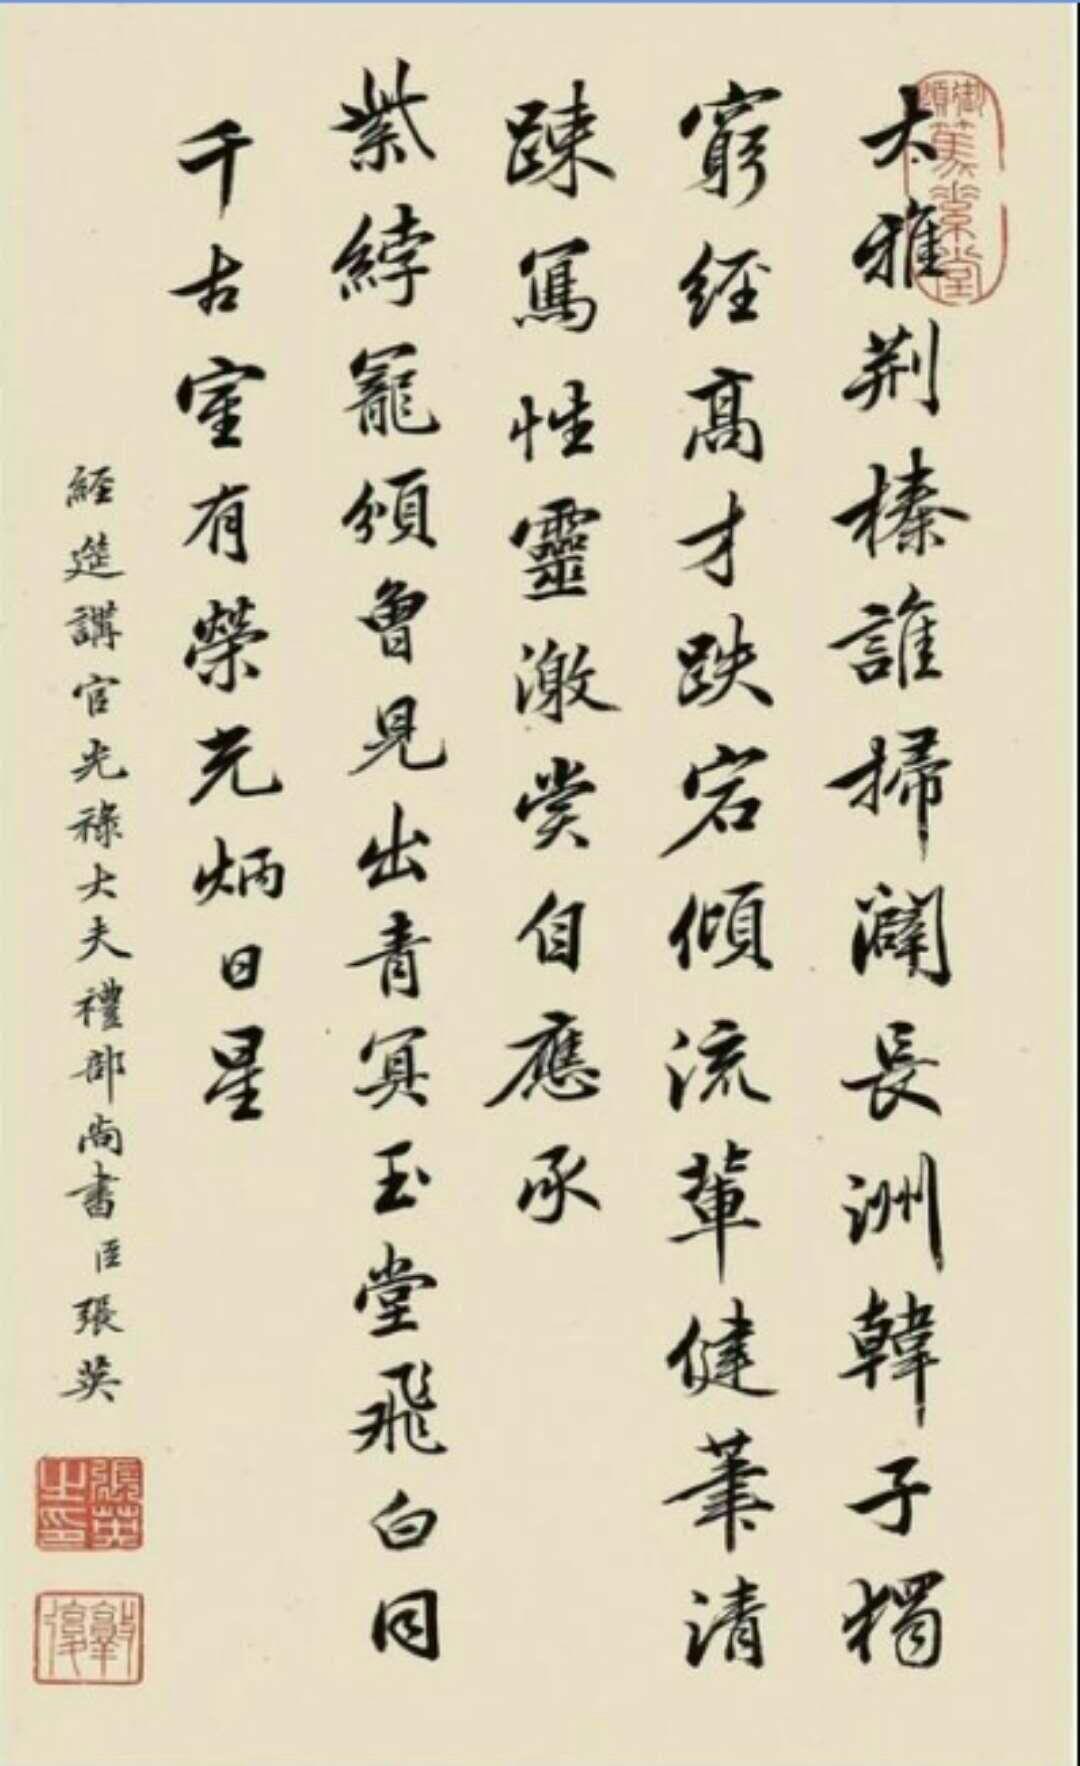 大雅荆榛誰掃濶長洲韓子獨
窮經高才跌宕傾流輩健筆清
踈寫性靈激赏自應承
紫綍寵頒曾見出青冥玉堂飛白同
千古室有榮光炳日星
經筵講官光祿大夫禮部尚書臣張英
張英之印
敦復